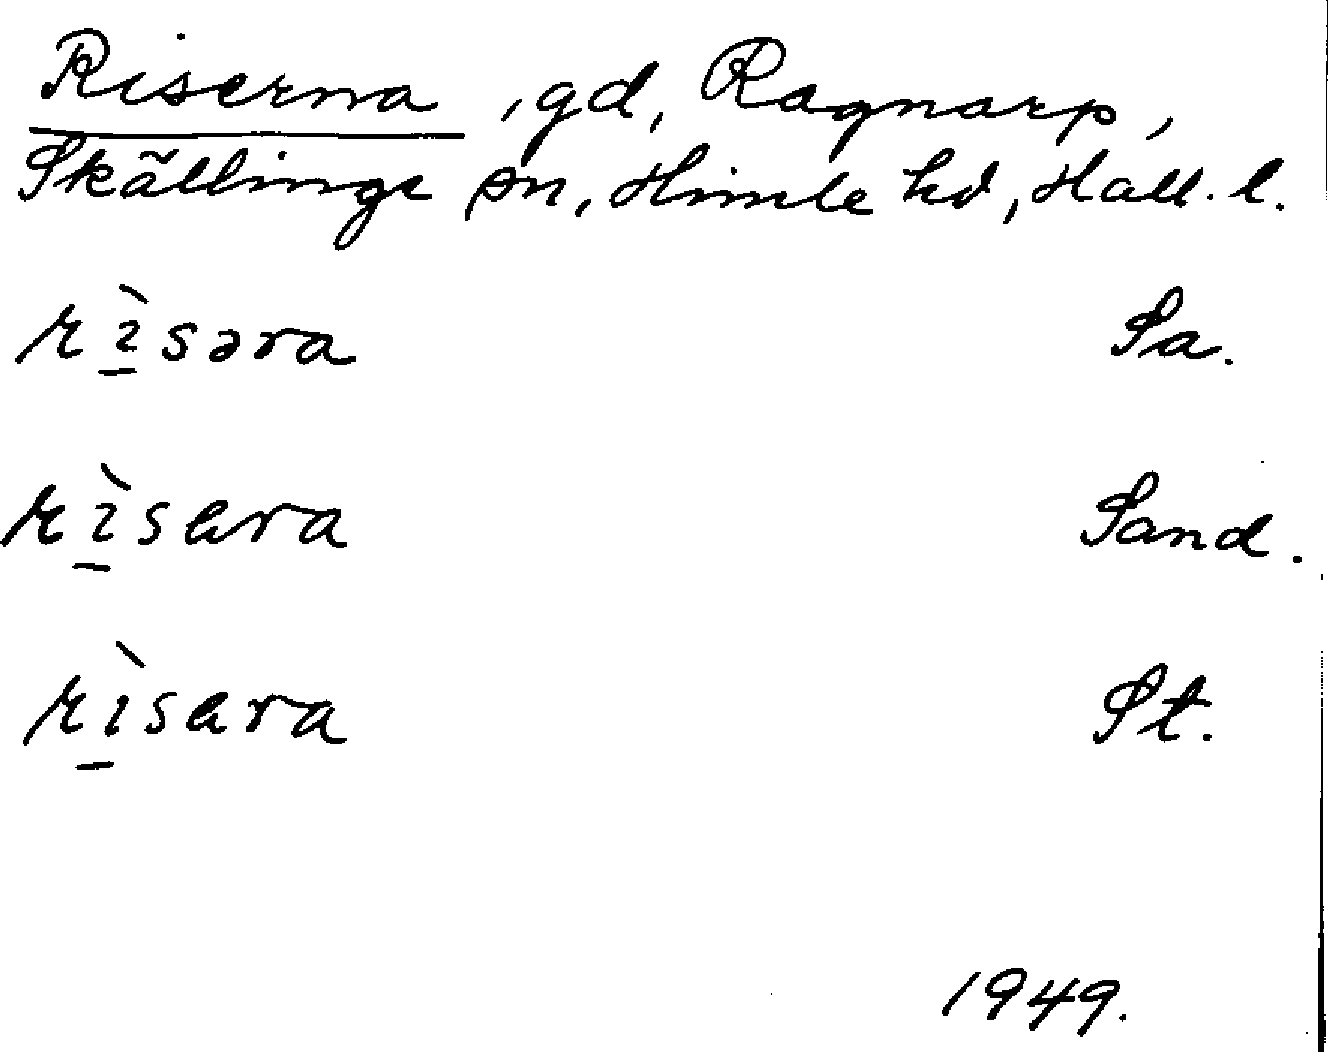 Riserna, gd, Ragnarp,
Skällinge sn, Himle hd, Hall. l.
rì̱səra Sa.
rì̱sara Sand.
rì̱sara St.
1949.